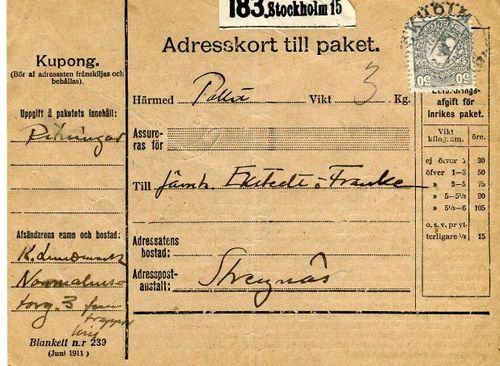 183. Stockholm 15
STOCKHOLM
50 50
Kupong.
(Bör af adressaten frånskiljas och
behållas).
Uppgift å paketets innehåll:
Ritningar
Afsändarens namn och bostad:
K. Lundmark
Norrmalms-
torg. 3
trappor
Blankett n.r 239
(Juni 1911)
Adresskort till paket.
Härmed Vikt 3 Kg.
Assure-
ras för
Till Ekstedt o Franke
Adressatens
bostad:
Adresspost-
anstalt: Strengnäs
Befordrings-
afgift för
inrikes paket.
Vikt kilogram. öre:
ej öfver 1 30
öfver 1—3 50
» 3—5 75
» 5—5½ 90
» 5½—6 105
o. s. v. pr yt-
terligare ½ 15